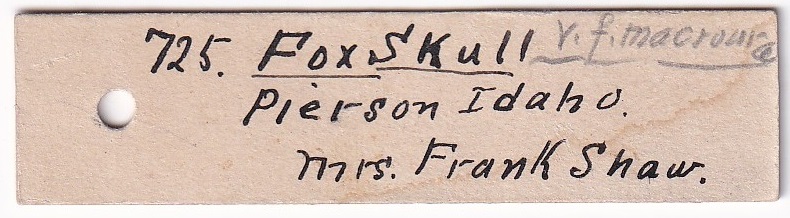 725. Fox Skull V. f. macroura
Pierson Idaho.
Mrs. Frank Shaw.